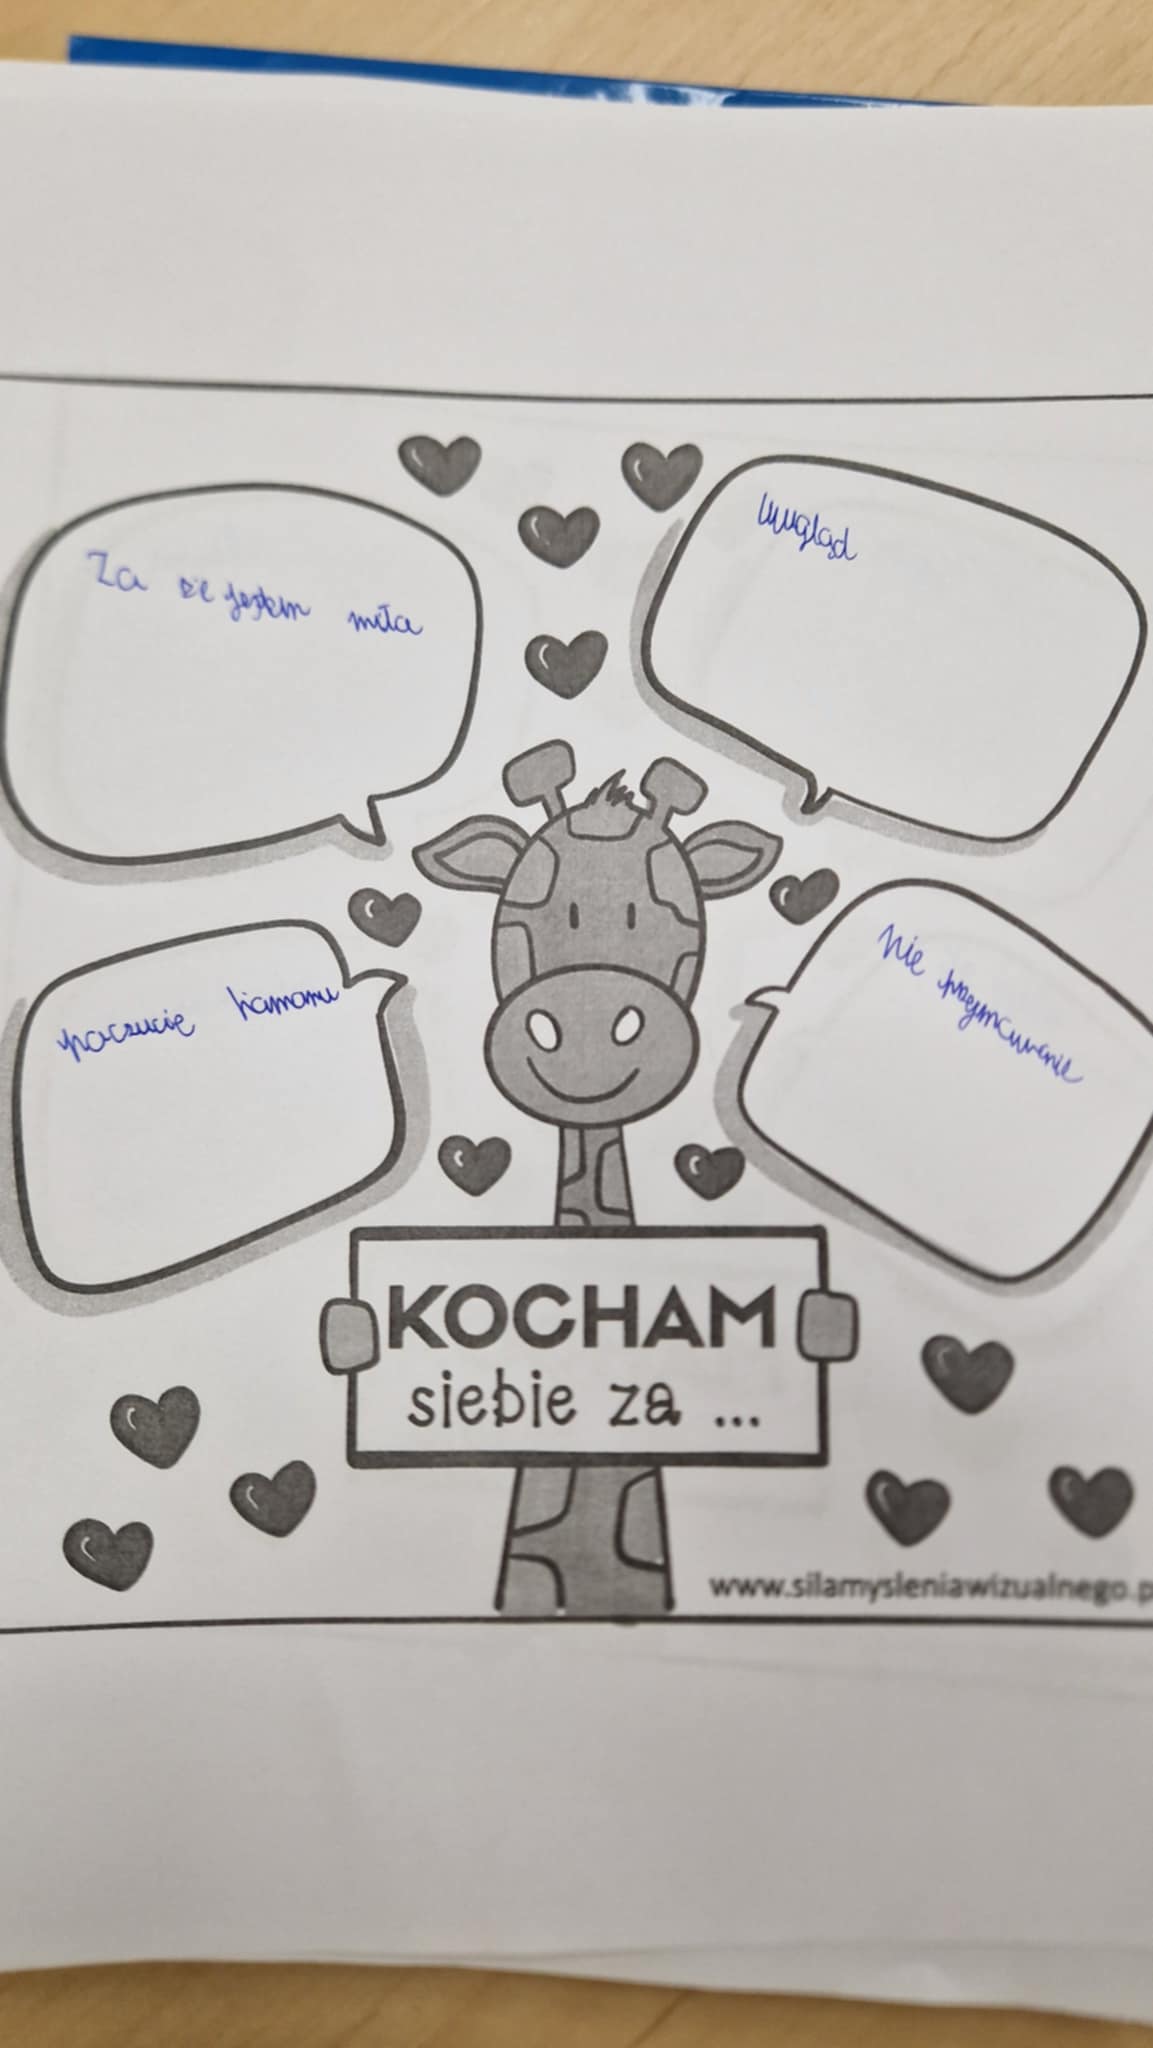 Za że jestem miła
Wygląd
poczucie humoru
Nie przejmowanie
KOCHAM
siebie za ...
www.silamysleniawizualnego.p